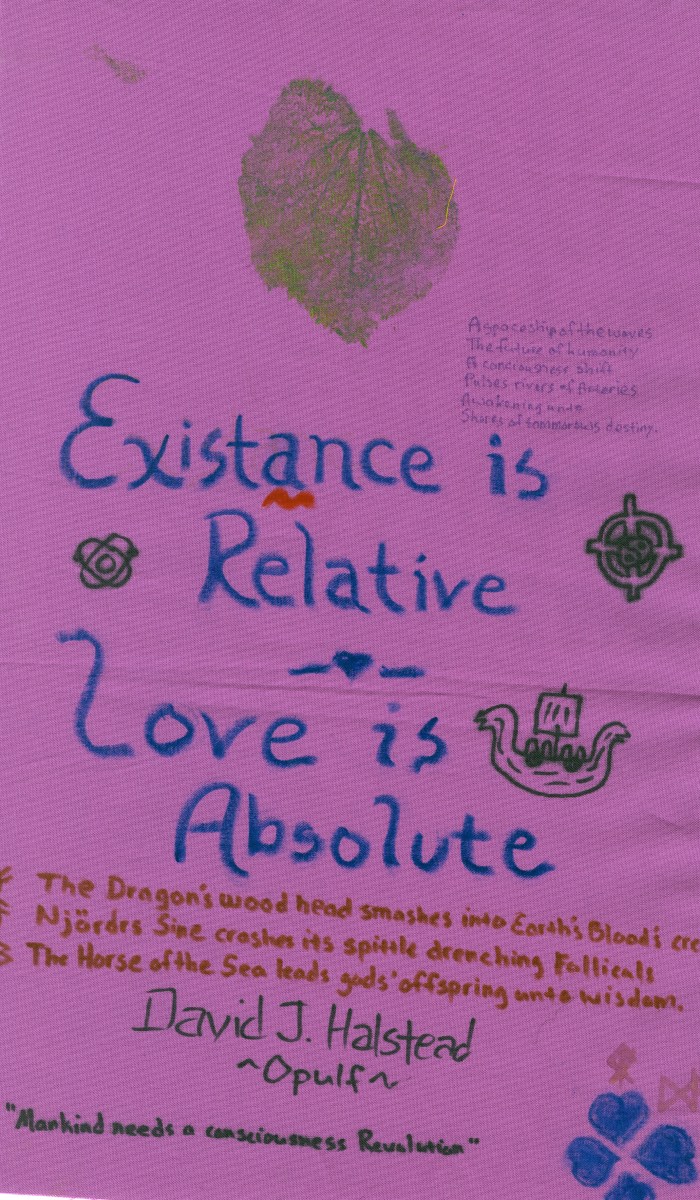 A spaceship of the waves
The future of humanity
A conciousness shift
Pulses rivers of Arteries
Awakening unto
Shores of tommorow's destiny.
Existance is
Relative
Love is
Absolute
The Dragon's wood head smashes into Earth's Blood's cre
Njördrs Sine crashes its spittle drenching Fallicals
The Horse of the Sea leads gods' offspring unto wisdom.
David J. Halstead
~Opulf~
"Mankind needs a consciousness Revolution"